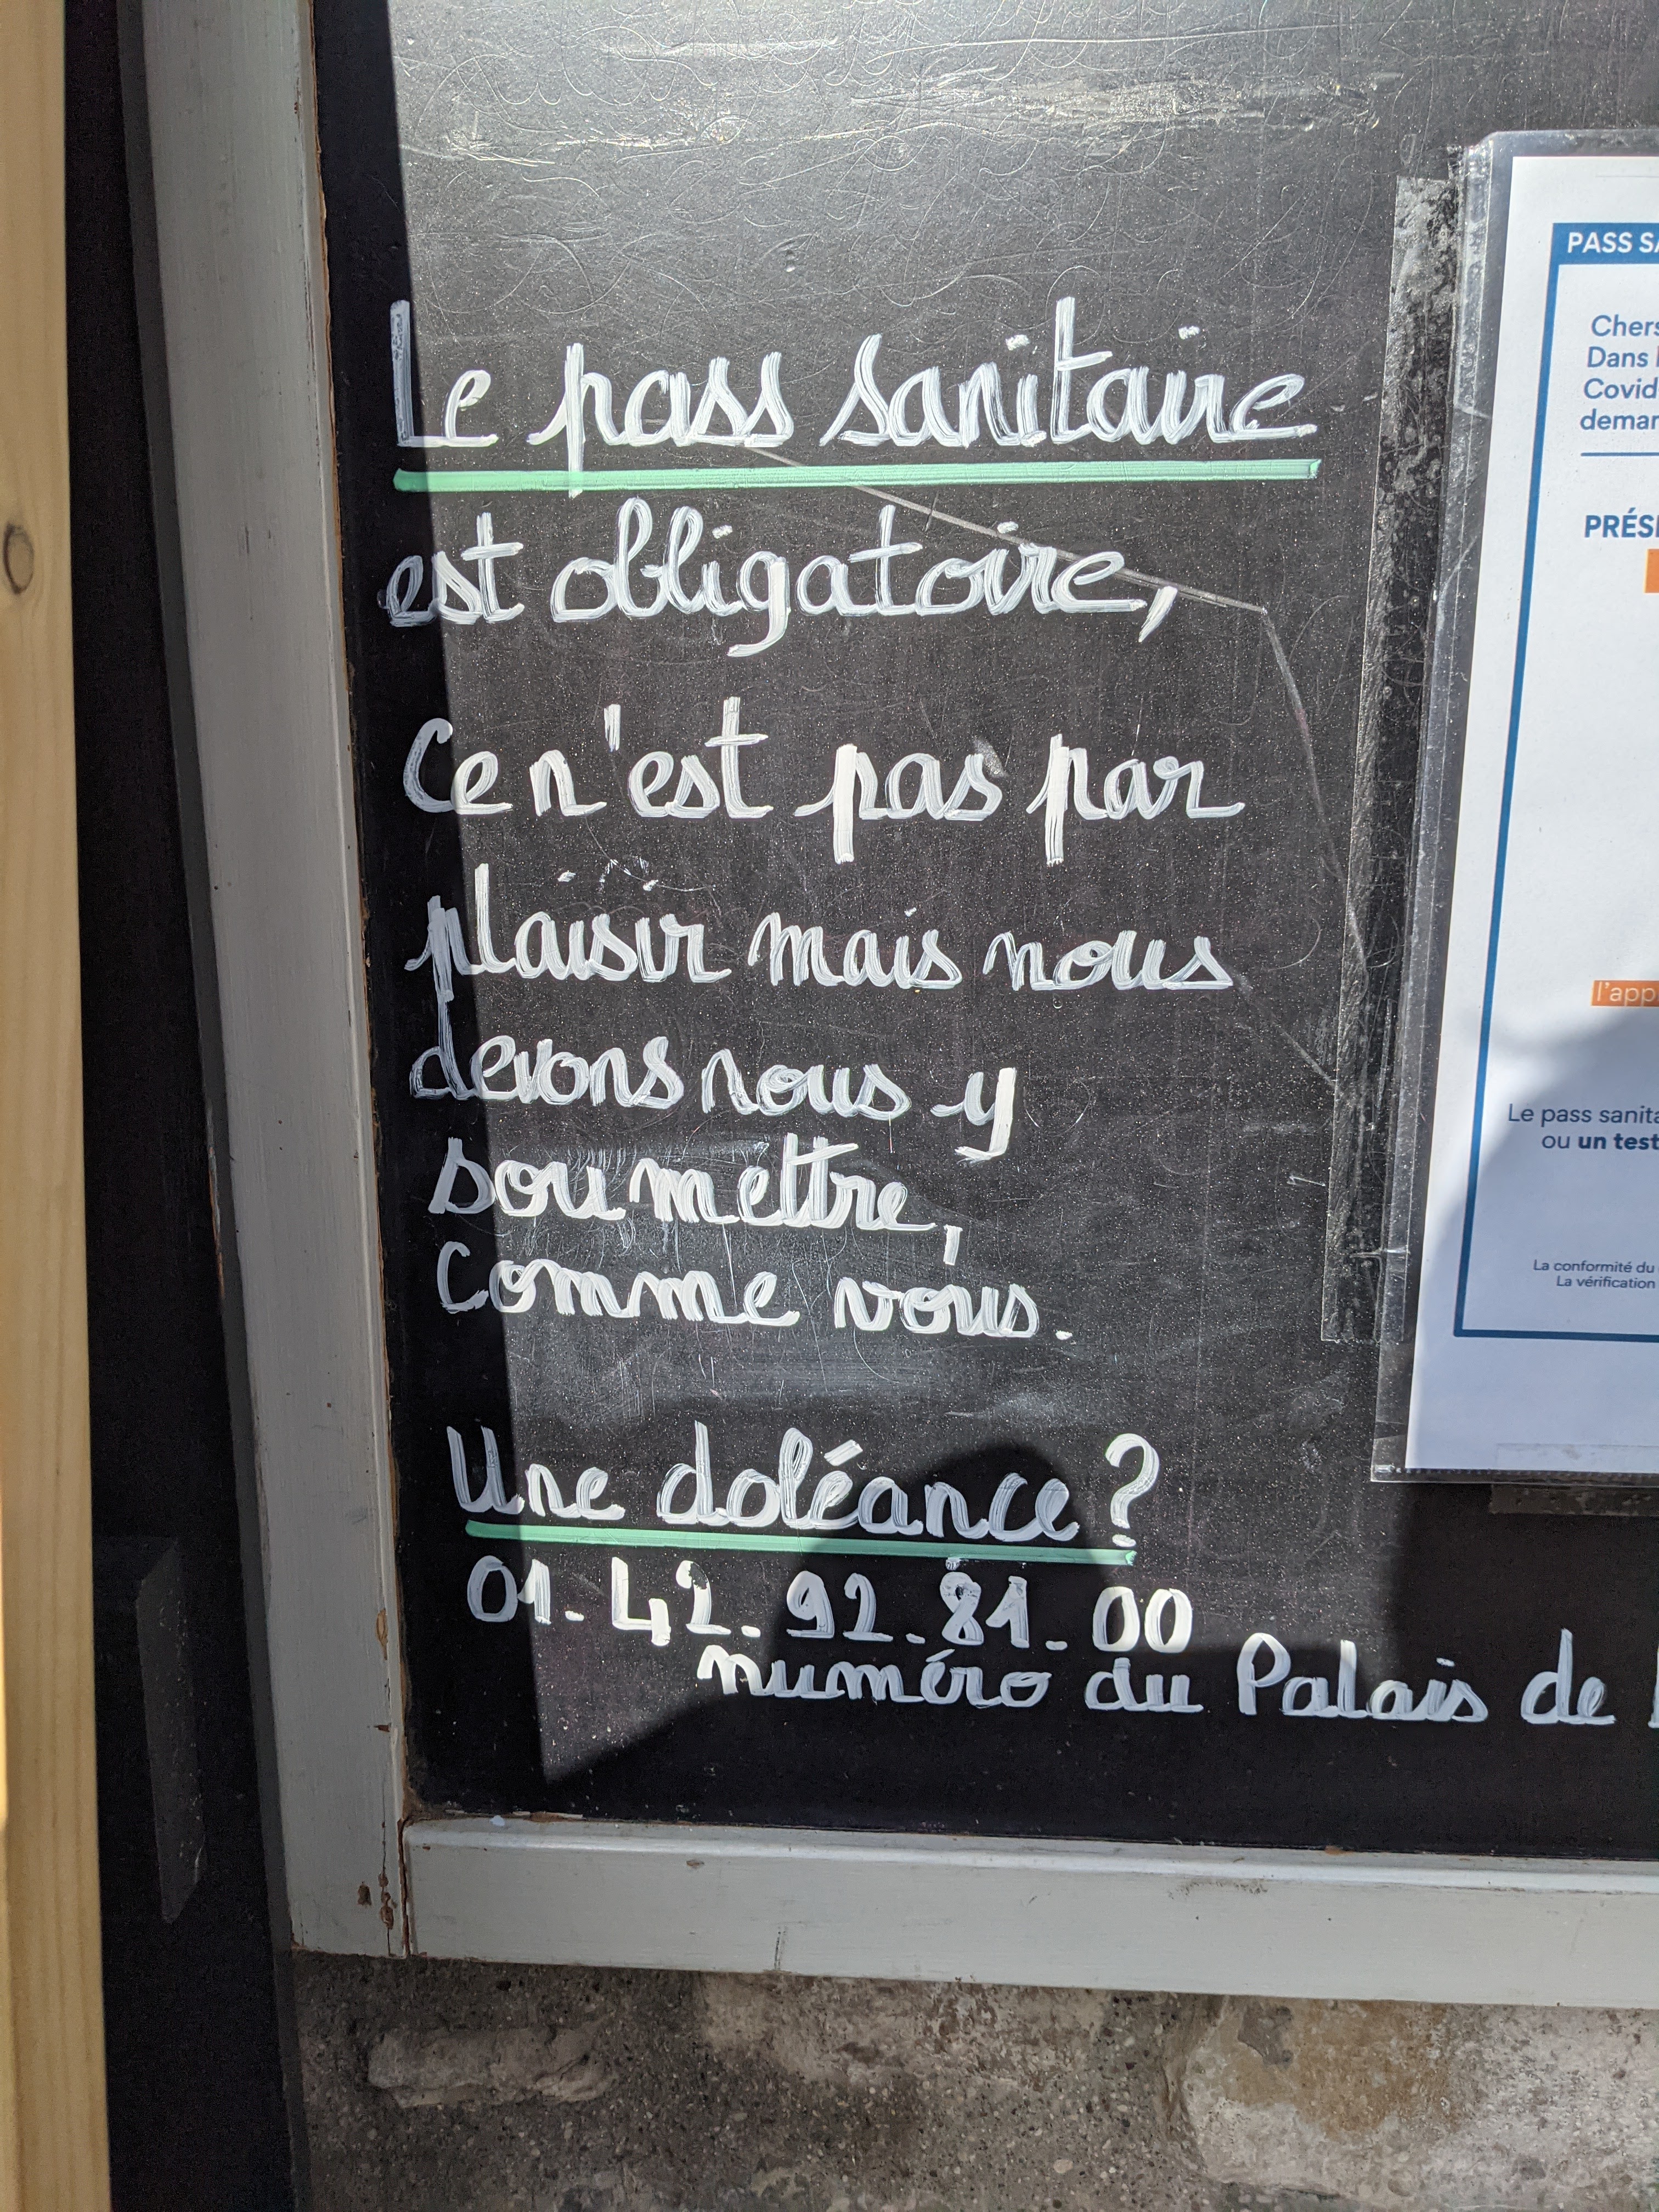 Le pass sanitaire
est obligatoire,
Ce n'est pas par
plaisir mais nous
devons nous y
soumettre,
Comme vous.
Une doléance ?
01.42.92.81.00
numéro du Palais de
PASS SA
Chers
Dans l
Covid
deman
PRÉSE
l'app
Le pass sanita
ou un test
La conformité du
La vérification